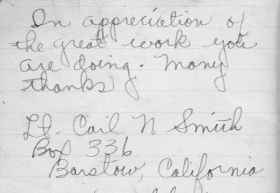 In appreciation of
the great work you
are doing. Many
thanks
Lt. Carl N Smith
Box 336
Barstow, California